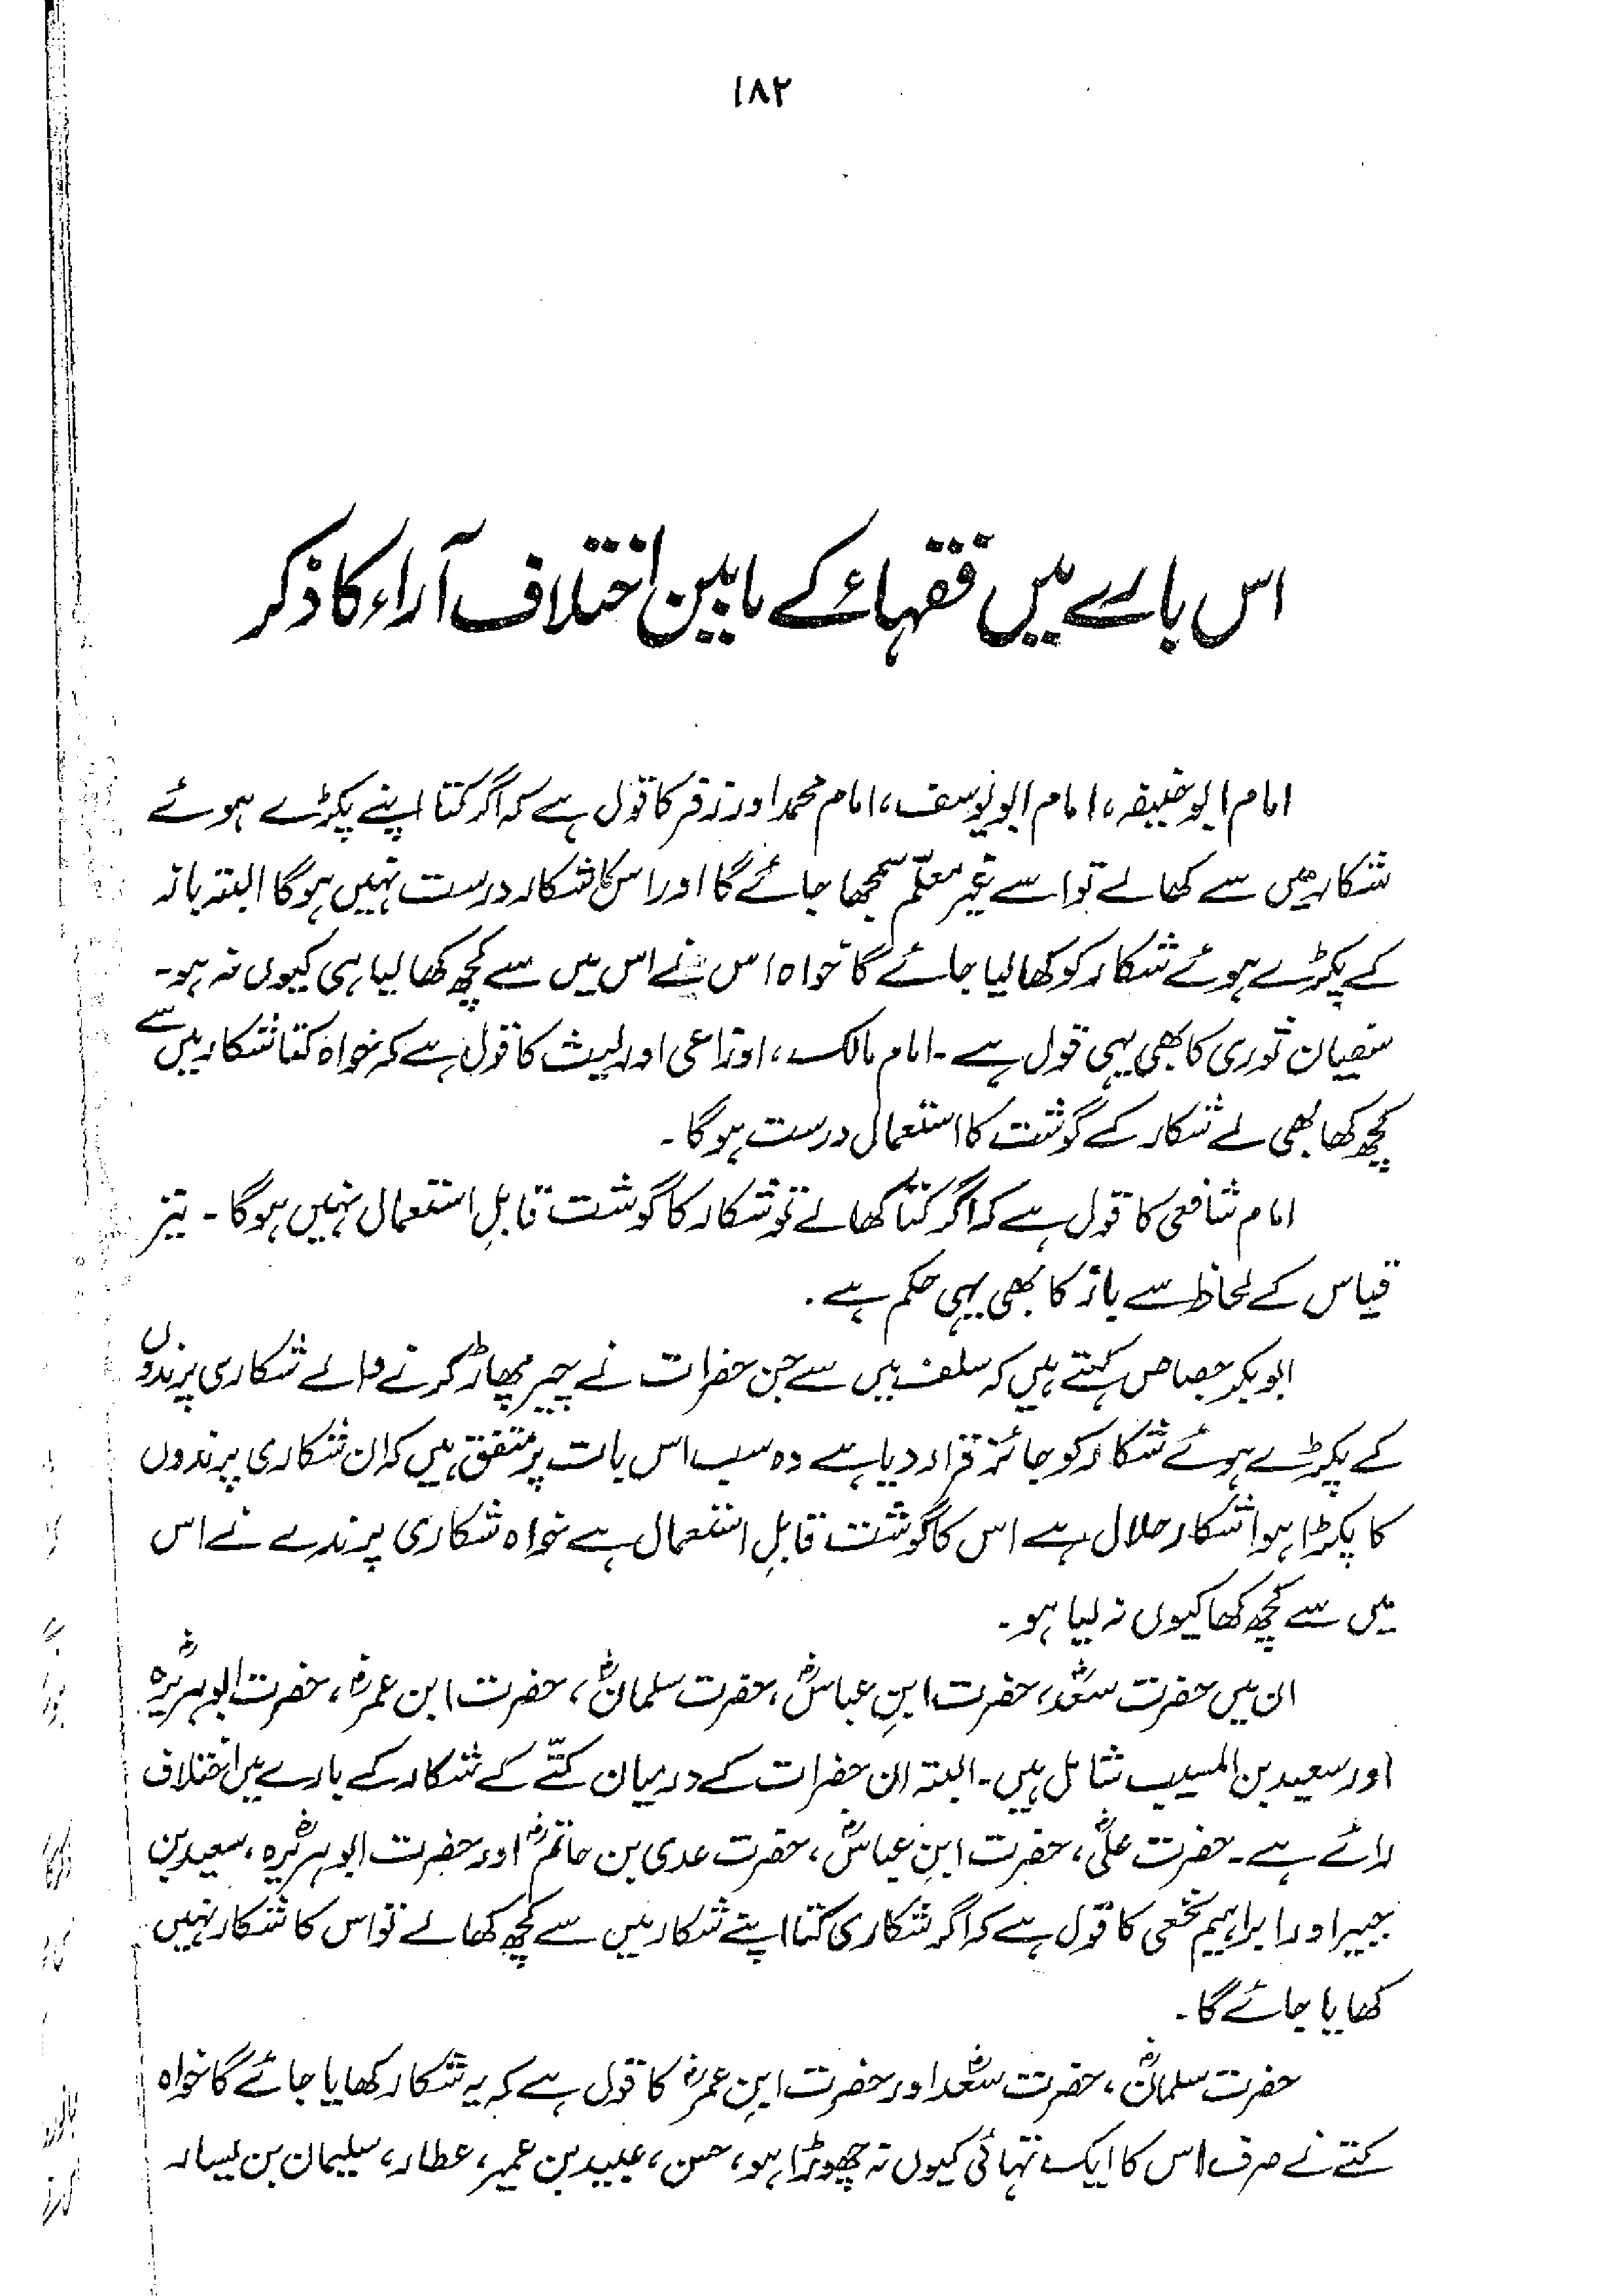 ۱۸۲
اس بارے میں فقہائے کے مابین اختلاف آراء کا ذکر
امام ابو حنیفہ، امام ابو یوسف، امام محمد اور زفر کا قول ہے کہ اگر کتا اپنے پکڑے ہوئے
شکار میں سے کھالے تو اسے غیر معلّم سمجھا جائے گا اور اس کا شکار درست نہیں ہوگا البتہ باز
کے پکڑے ہوئے شکار کو کھا لیا جائے گا خواہ اس نے اس میں سے کچھ کھا لیا ہی کیوں نہ ہو۔
سفیان ثوری کا بھی یہی قول ہے۔ امام مالک، اوزاعی اور لیث کا قول ہے کہ خواہ کتا شکار میں سے
کچھ کھا بھی لے شکار کے گوشت کا استعمال درست ہوگا۔
امام شافعی کا قول ہے کہ اگر کتا کھالے تو شکار کا گوشت قابلِ استعمال نہیں ہوگا۔ نیز
قیاس کے لحاظ سے باز کا بھی یہی حکم ہے۔
ابو بکر جصاص کہتے ہیں کہ سلف میں سے جن حضرات نے چیر پھاڑ کرنے والے شکاری پرندوں
کے پکڑے ہوئے شکار کو جائز قرار دیا ہے وہ سب اس بات پر متفق ہیں کہ ان شکاری پرندوں
کا پکڑا ہوا شکار حلال ہے اس کا گوشت قابلِ استعمال ہے خواہ شکاری پرندے نے اس
میں سے کچھ کھا کیوں نہ لیا ہو۔
ان میں حضرت سعدؓ، حضرت ابنِ عباسؓ، حضرت سلمانؓ، حضرت ابن عمرؓ، حضرت ابوہریرہؓ
اور سعید بن المسیب شامل ہیں۔ البتہ ان حضرات کے درمیان کتّے کے شکار کے بارے میں اختلاف
رائے ہے۔ حضرت علیؓ، حضرت ابنِ عباسؓ، حضرت عدی بن حاتمؓ اور حضرت ابوہریرہؓ، سعید بن
جبیر اور ابراہیم نخعی کا قول ہے کہ اگر شکاری کتا اپنے شکار میں سے کچھ کھالے تو اس کا شکار نہیں
کھایا جائے گا۔
حضرت سلمانؓ، حضرت سعدؓ اور حضرت ابنِ عمرؓ کا قول ہے کہ یہ شکار کھایا جائے گا خواہ
کتے نے صرف اس کا ایک تہائی کیوں نہ چھوڑا ہو، حسن، عبید بن عمیر، عطار، سلیمان بن یسار